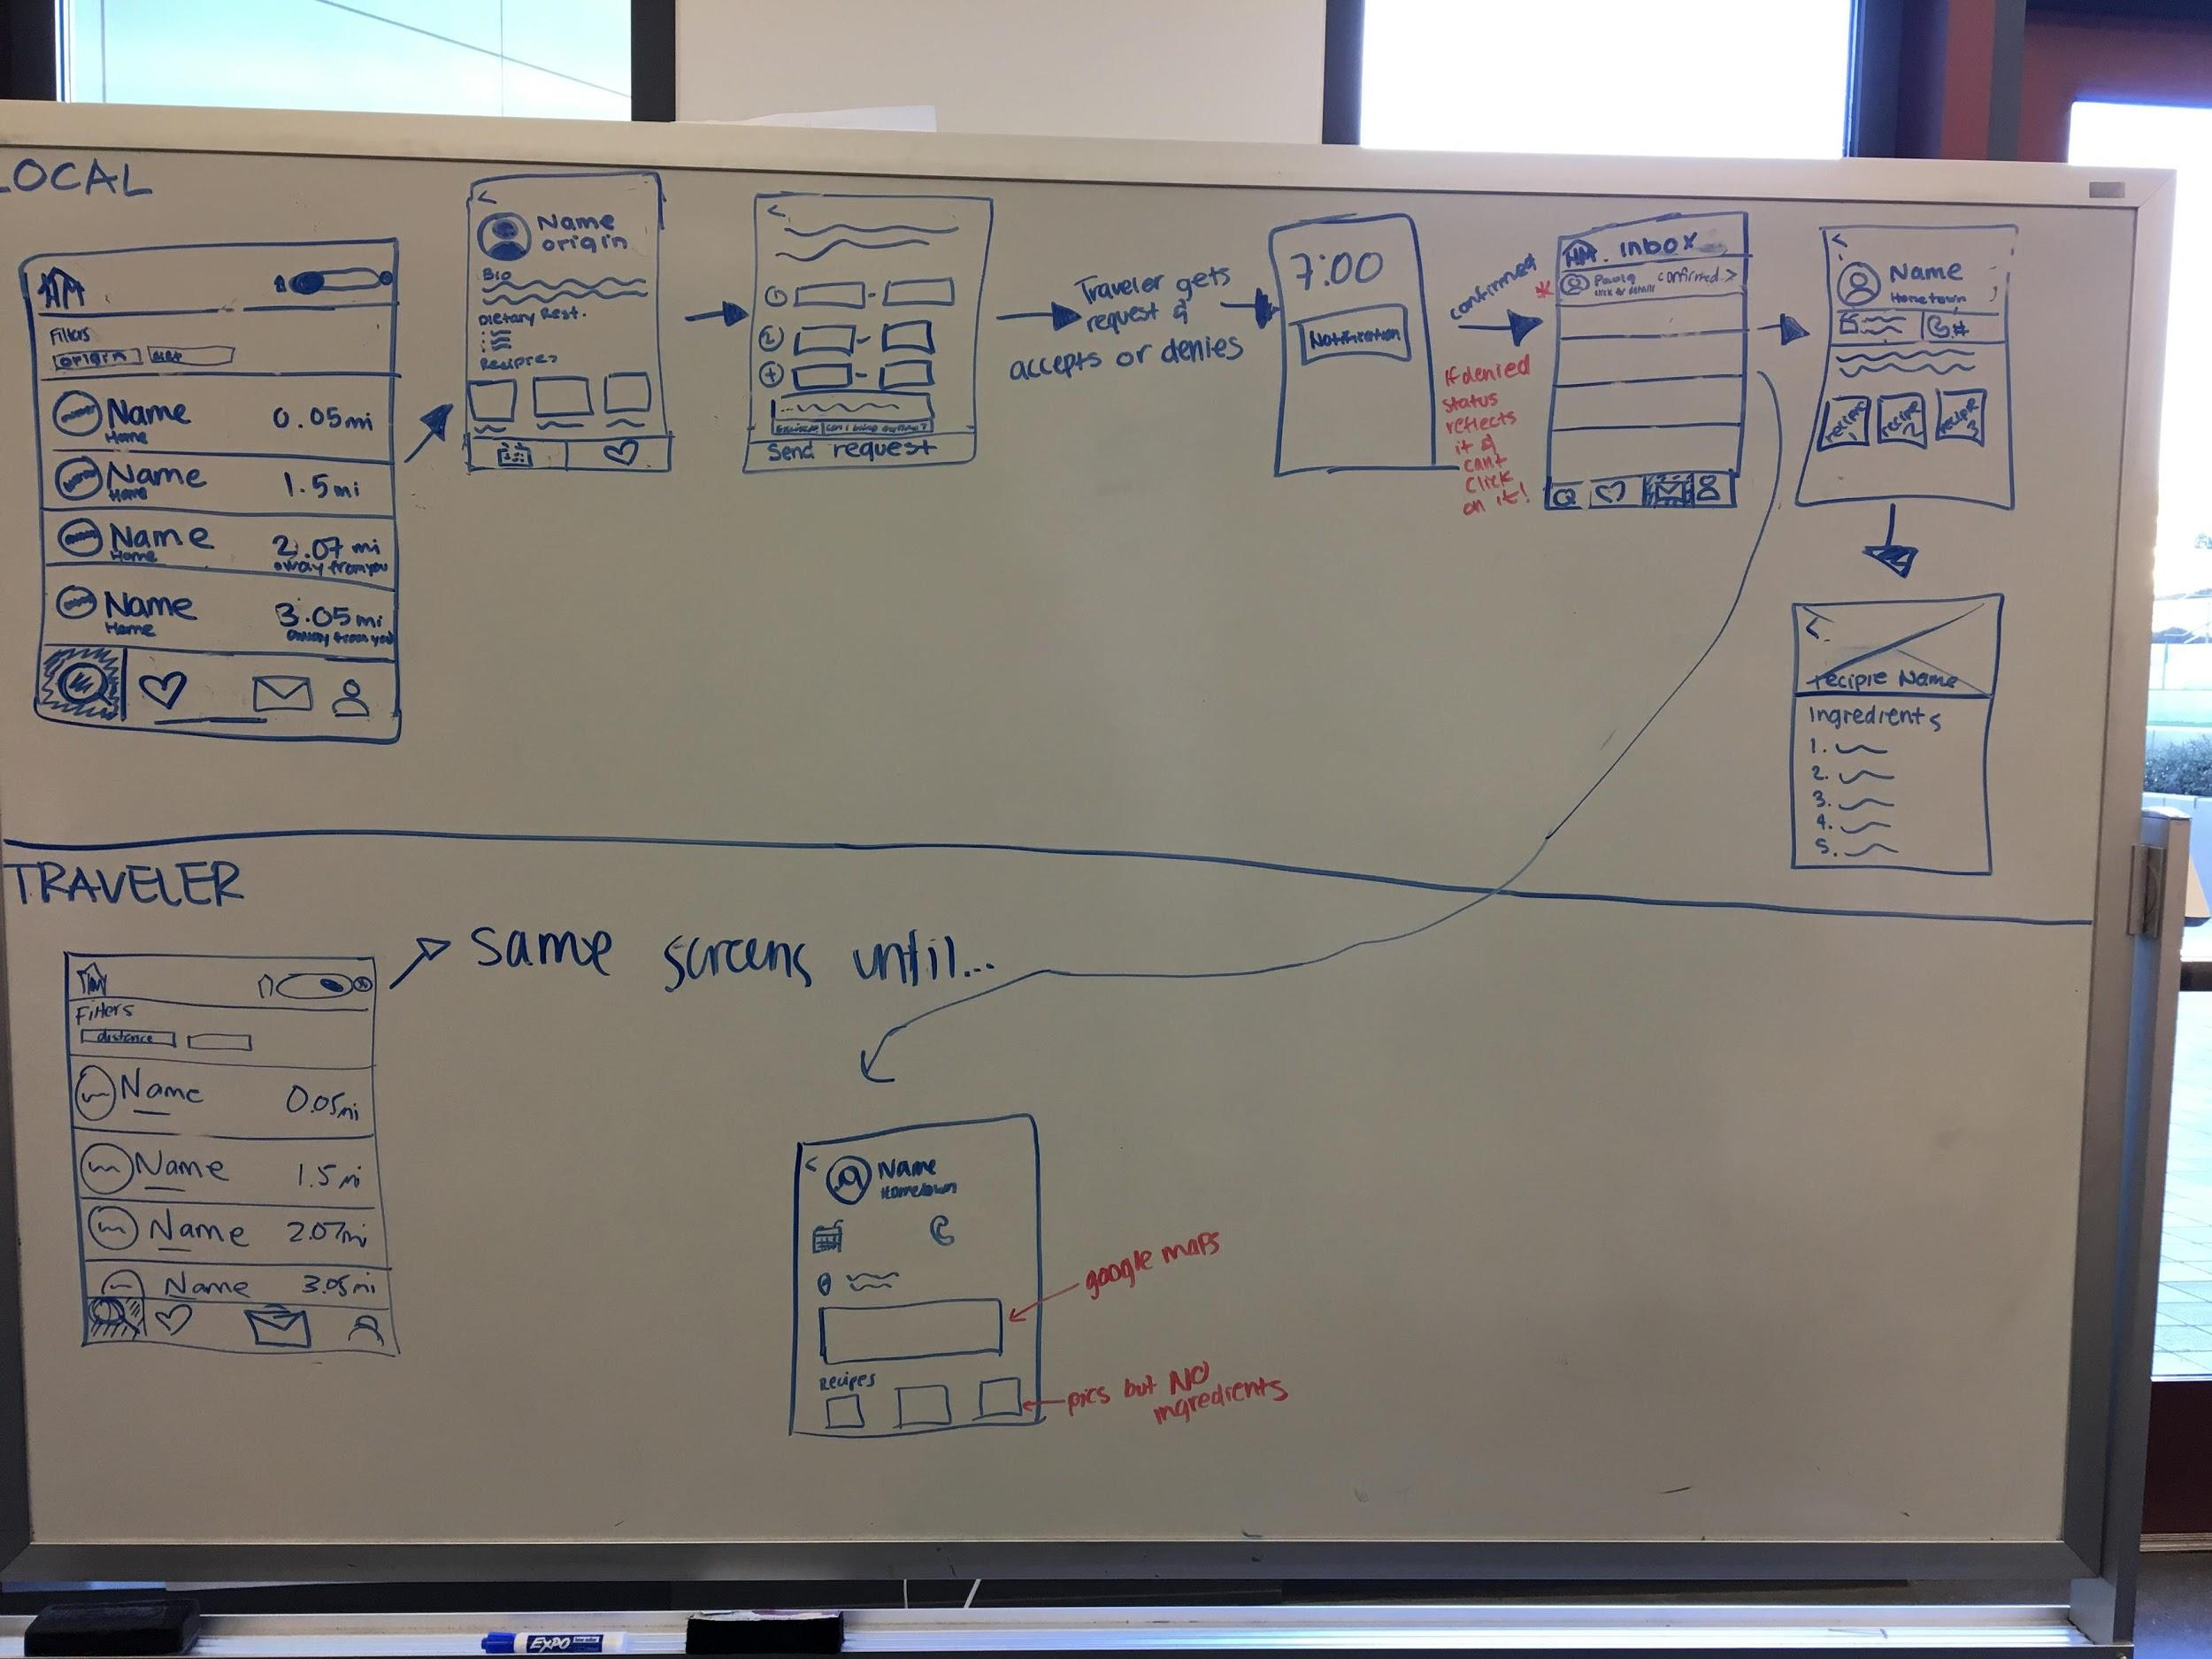 LOCAL
HM
Filters
origin
Name
Home
0.05mi
Name
Home
1.5mi
Name
Home
2.07 mi
away from you
Name
Home
3.05mi
away from you
<
Name
origin
Bio
Dietary Rest.
Recipies
<
1
-
2
-
+
-
Send request
Traveler gets
request &
accepts or denies
7:00
Notification
confirmed
If denied
status
reflects
it &
cant
click
on it!
*
HM. Inbox
Paula
click for details
confirmed >
<
Name
Hometown
#
recipe
1
recipe
2
recipe
3
<
recipie Name
Ingredients
1.
2.
3.
4.
5.
TRAVELER
HM
Filters
distance
Name
0.05mi
Name
1.5mi
Name
2.07mi
Name
3.05mi
same screens until...
<
Name
Hometown
Recipes
google maps
pics but NO
ingredients
EXPO